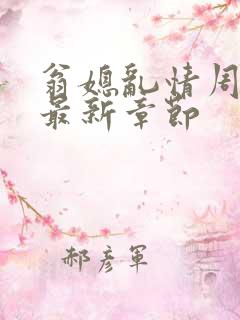 翁媳亂情周
最新章節
郝彥軍